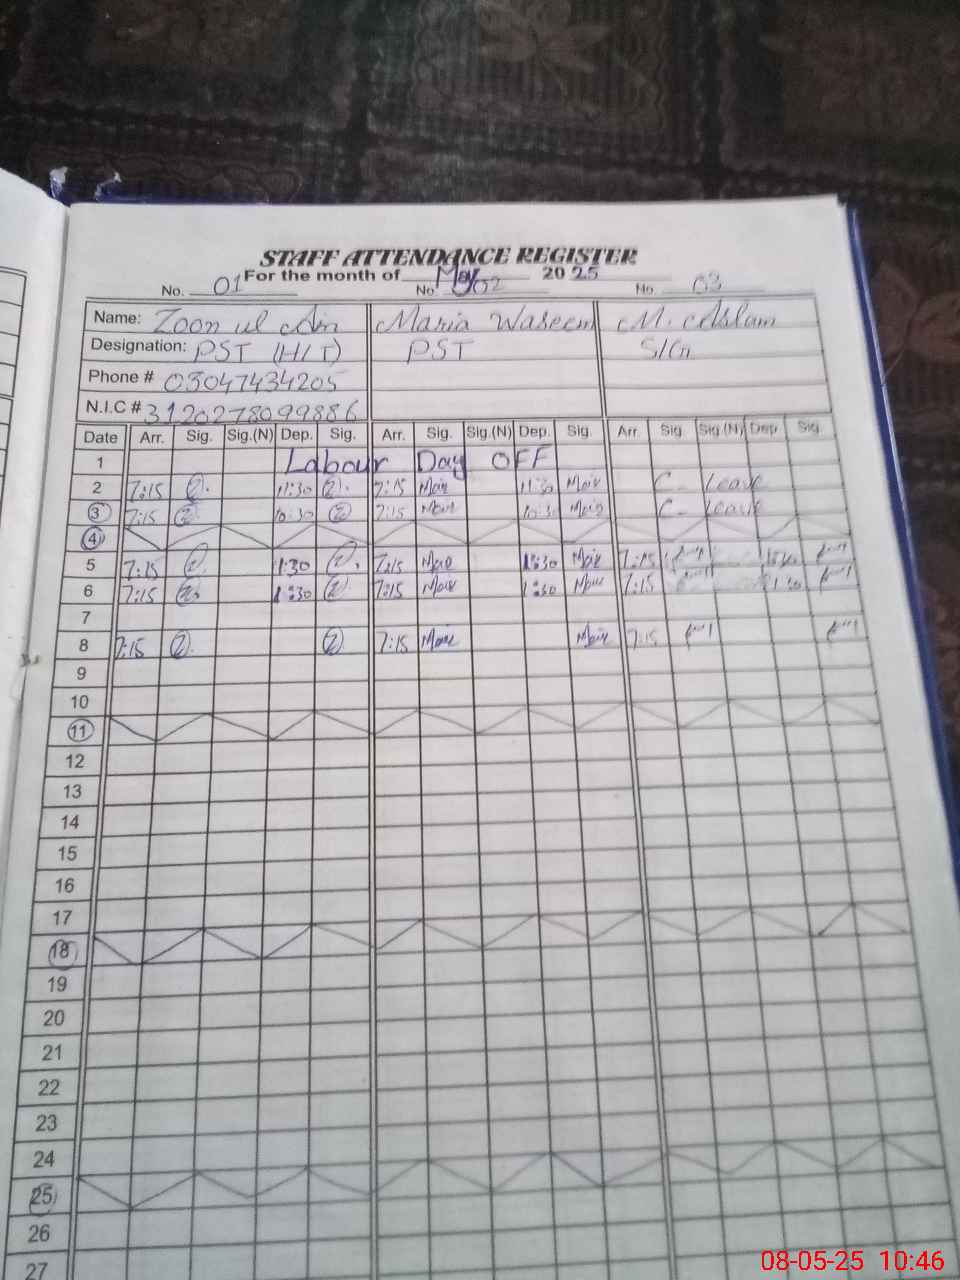 STAFF ATTENDANCE REGISTER
For the month of May 2025
No. 01 No. 02 No. 03
Name: Zoon ul Ain Maria Waseem M. Aslam
Designation: PST (H/T) PST
Phone # 03047434205
N.I.C # 3120278099886
Date Arr. Sig. Sig.(N) Dep. Sig. Arr. Sig. Sig.(N) Dep. Sig. Arr. Sig. Sig.(N) Dep. Sig.
1 Labour Day OFF
2 7:15 11:30 7:15 11:30 C- Leave
3 7:15 10:30 7:15 10:30 C- Leave
4
5 7:15 1:30 7:15 1:30 7:15
6 7:15 1:30 7:15 1:30 7:15 1:30
7
8 7:15 7:15 7:15
9
10
11
12
13
14
15
16
17
18
19
20
21
22
23
24
25
26
27
08-05-25 10:46